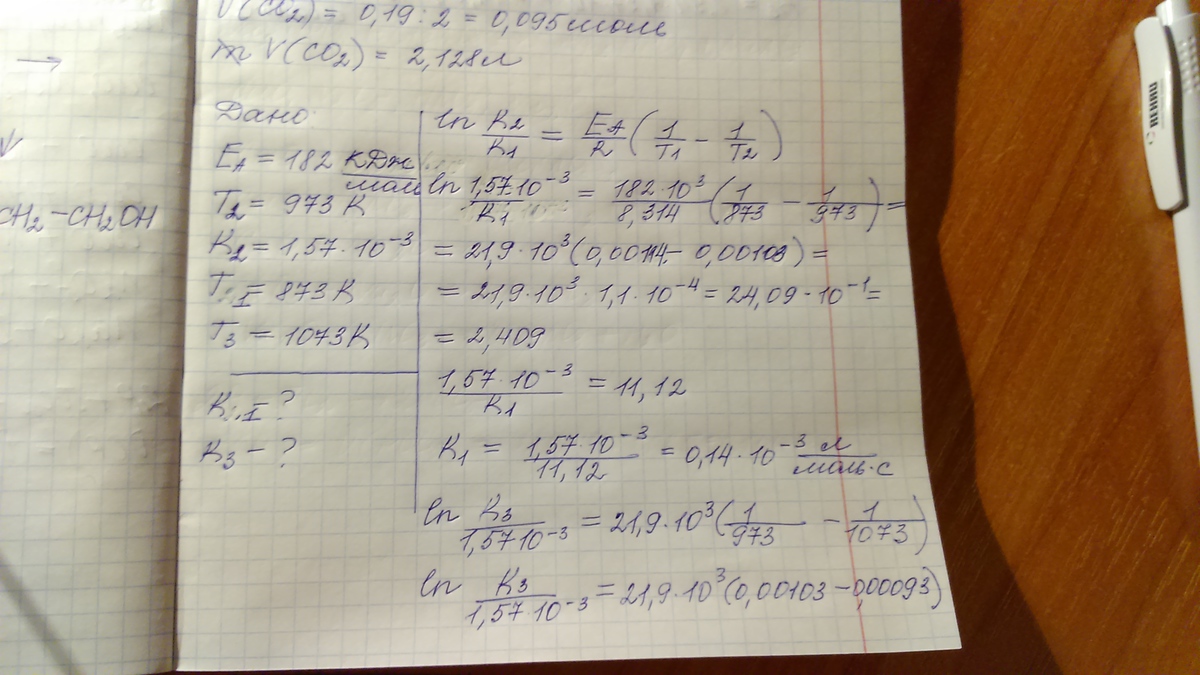 V(CO₂) = 0,19 : 2 = 0,095 моль
V(CO₂) = 2,128 л
→
CH₂–CH₂OH
Дано:
E_A = 182 кДж/моль
T₂ = 973 K
K₂ = 1,57 · 10⁻³
T₁ = 873 K
T₃ = 1073 K
K₁ – ?
K₃ – ?
ln K₂/K₁ = E_A/R (1/T₁ – 1/T₂)
ln 1,57·10⁻³/K₁ = 182·10³/8,314 (1/873 – 1/973) =
= 21,9·10³ (0,00114 – 0,00103) =
= 21,9·10³ · 1,1·10⁻⁴ = 24,09·10⁻¹ =
= 2,409
1,57·10⁻³/K₁ = 11,12
K₁ = 1,57·10⁻³/11,12 = 0,14·10⁻³ л/моль·с
ln K₃/1,57·10⁻³ = 21,9·10³ (1/973 – 1/1073)
ln K₃/1,57·10⁻³ = 21,9·10³ (0,00103 – 0,00093)
ПИНИЯ